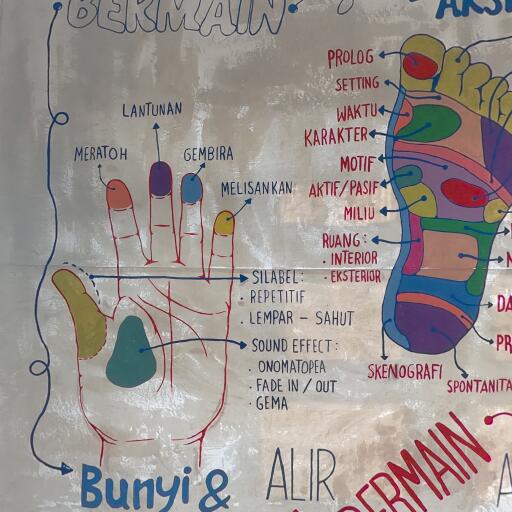 BERMAIN
LANTUNAN
MERATOH
GEMBIRA
MELISANKAN
SILABEL:
· REPETITIF
· LEMPAR - SAHUT
SOUND EFFECT:
· ONOMATOPEA
· FADE IN / OUT
· GEMA
Bunyi &
PROLOG
SETTING
WAKTU
KARAKTER
MOTIF
AKTIF/PASIF
MILIU
RUANG:
· INTERIOR
· EKSTERIOR
SKENOGRAFI
ALIR
BERMAIN